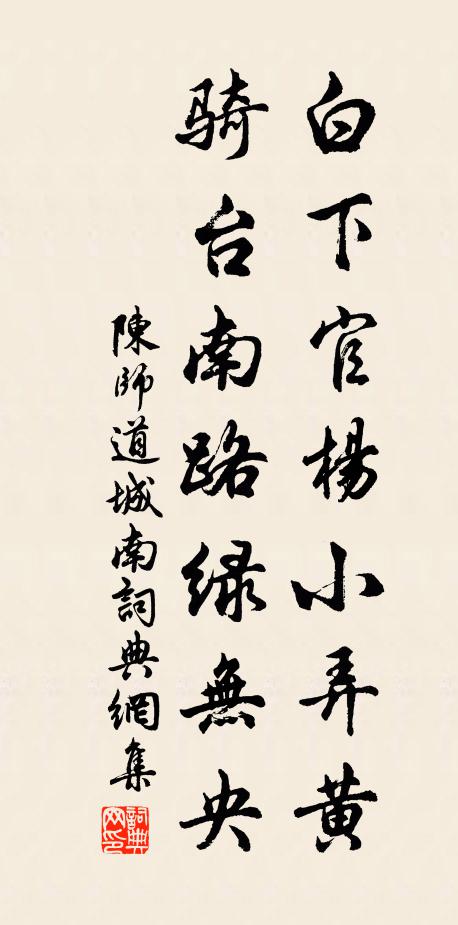 白下官楊小弄黄
騎台南路緑無央
陳師道城南詞典網集
詞典網印